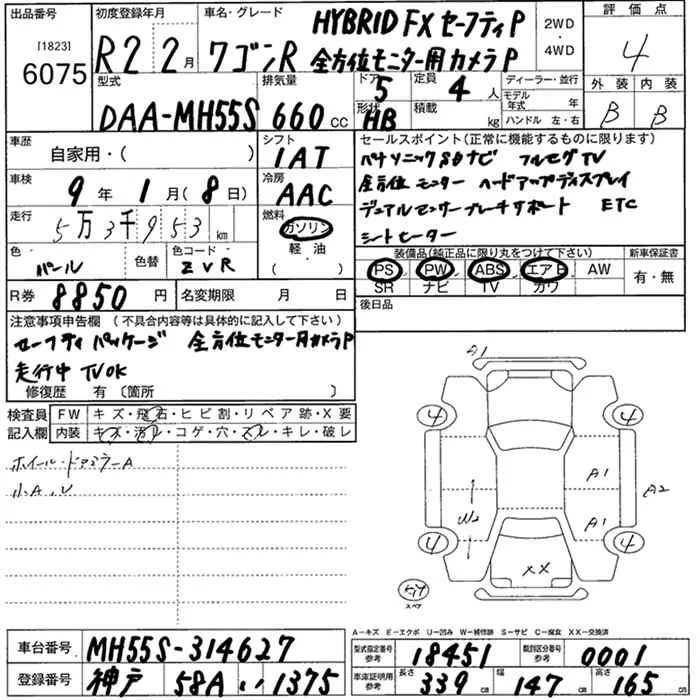 出品番号 初度登録年月 車名・グレード 2WD・4WD 評価点
[1823]
6075 R2 2月 ワゴンR HYBRID FX セーフティP 4
全方位モニター用カメラP
型式 排気量 ドア 定員 ディーラー・並行 外装 内装
DAA-MH55S 660 CC 5 4人 モデル年式 年 B B
形状 積載 kg ハンドル 左・右
HB
車歴 シフト セールスポイント(正常に機能するものに限ります)
自家用・( ) IAT パナソニック8インチナビ フルセグTV
車検 冷房 全方位モニター ヘッドアップディスプレイ
9年 1月(8日) AAC デュアルセンサーブレーキサポート ETC
走行 燃料 シートヒーター
5万3千953km ガソリン
軽・油
( )
色 色替 色コード 装備品(純正品に限り丸をつけて下さい) 新車保証書
パール ZVR PS PW ABS エアB AW 有・無
SR ナビ TV カワ
R券 8850円 名変期限 月 日 後日品
注意事項申告欄 (不具合内容等は具体的に記入して下さい)
セーフティパッケージ 全方位モニター用カメラP
走行中TVOK
修復歴 有 〔箇所 〕
検査員記入欄 FW キズ・飛石・ヒビ割・リペア跡・X要
内装 キズ・汚レ・コゲ・穴・スレ・キレ・破レ
ホイール・ドアミラーA
小A、U
A1
4 4
A1
A2
W2 A1
4 4
XX
キット
スペア
A−キズ E−エクボ U−凹み W−補修跡 S−サビ C−腐食 XX−交換済
車台番号 MH55S-314627 型式指定番号 参考 18451 類別区分番号 参考 0001
登録番号 神戸 58A い 1375 車庫証明用 参考 長さ 339cm 幅 147cm 高さ 165cm